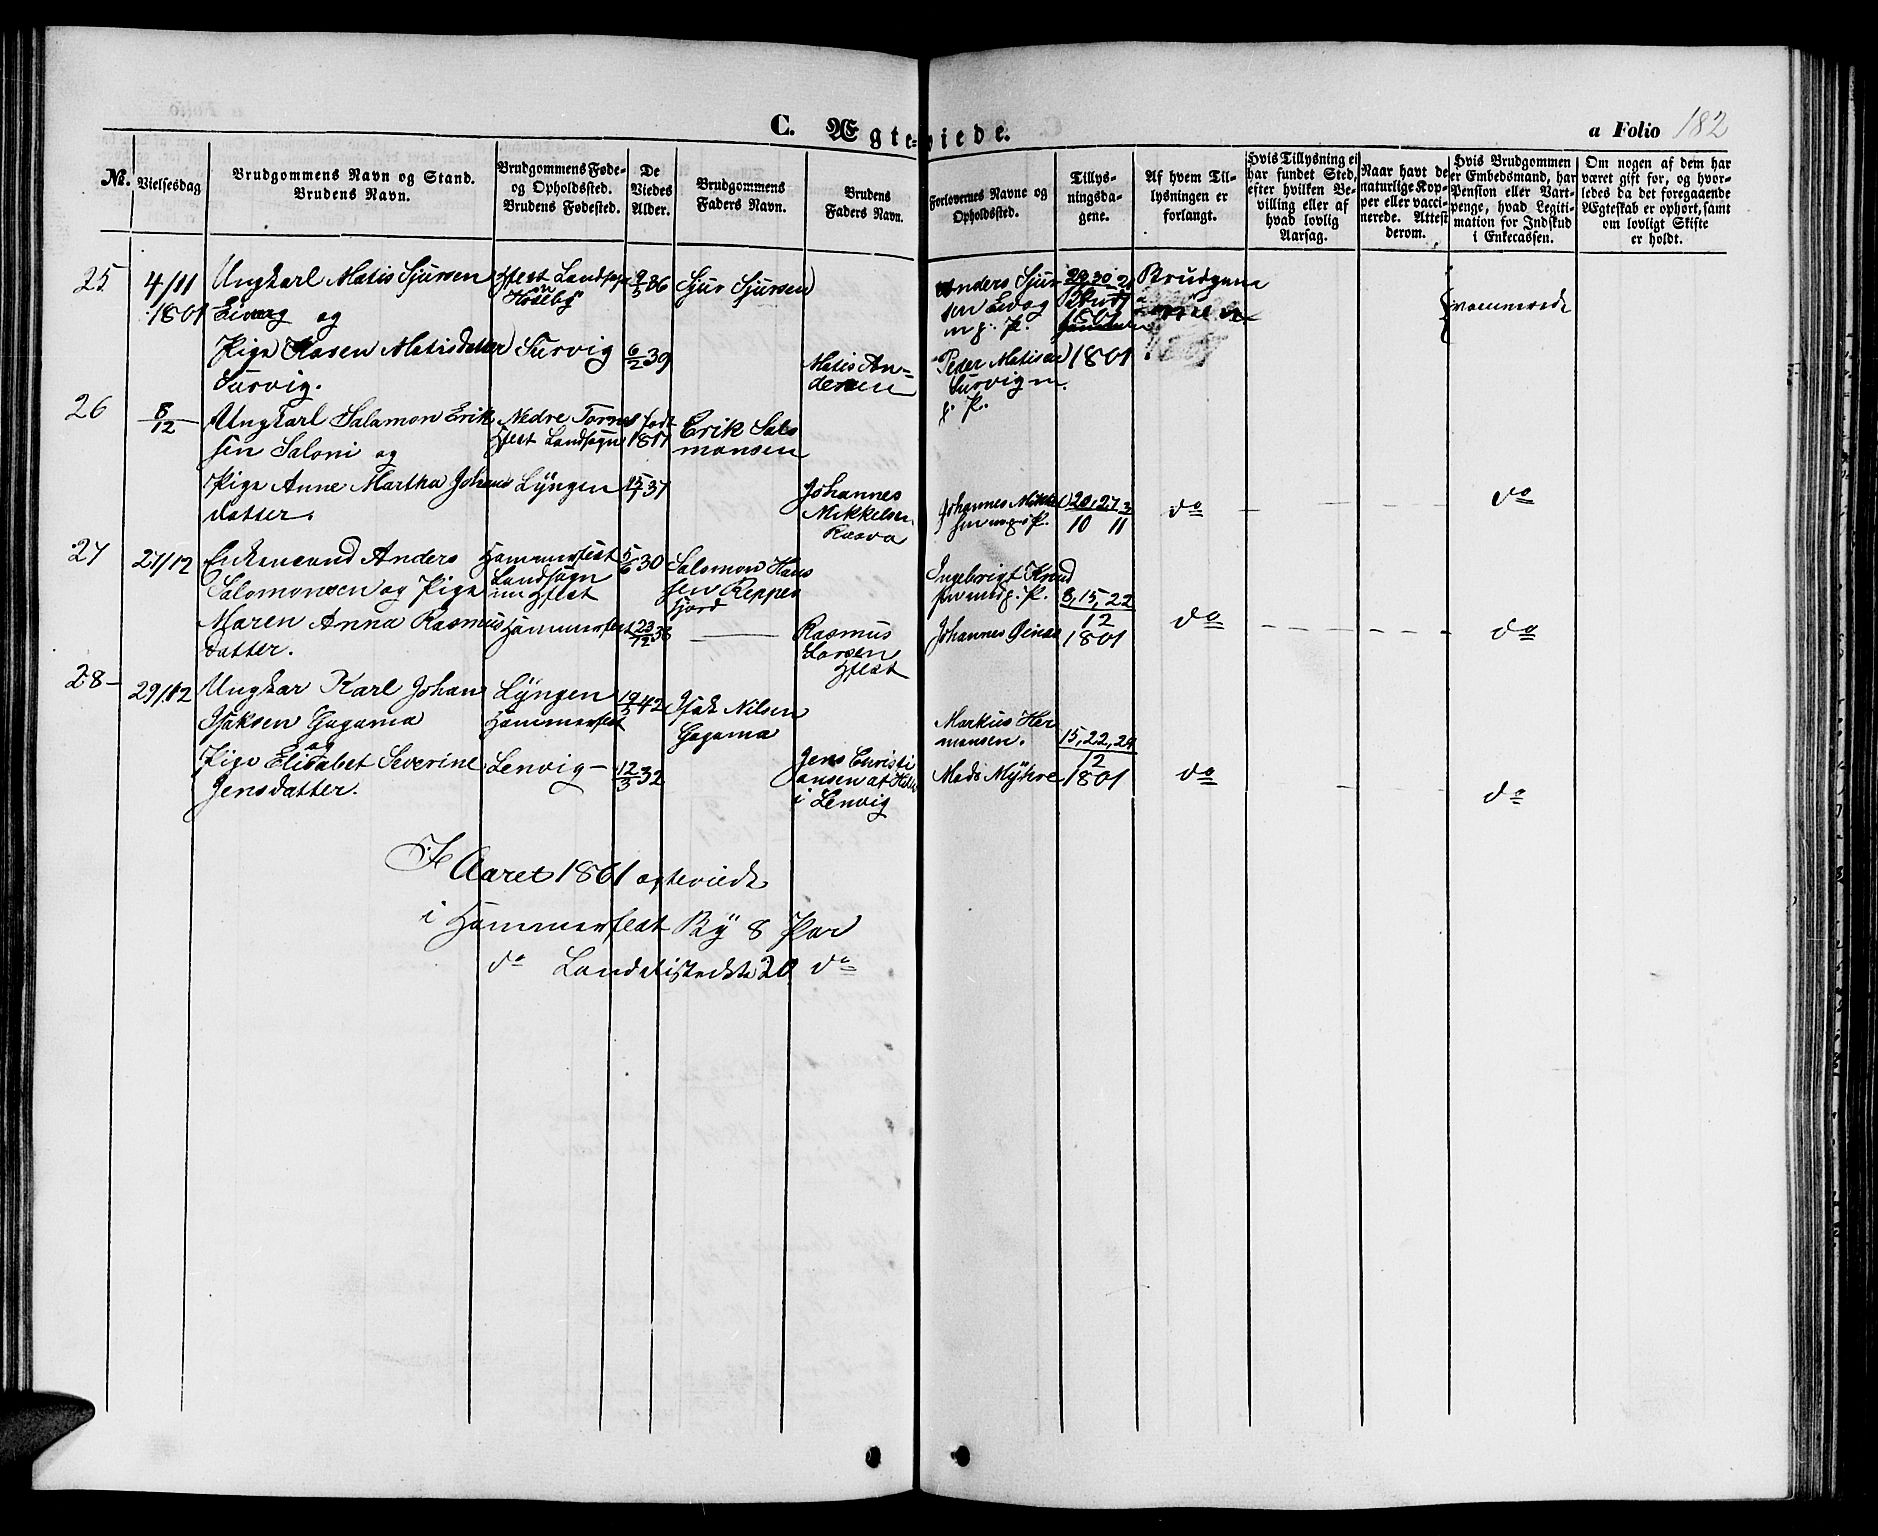 C. Ægteviede.
a Folio 182
No.
Vielsesdag
Brudgommens Navn og Stand.
Brudens Navn.
Brudgommens Føde-
og Opholdssted.
Brudens Fødested.
De
Viedes
Alder.
Brudgommens
Faders Navn.
Brudens
Faders Navn.
Forlovernes Navne og
Opholdssted.
Tillys-
ningsda-
gene.
Af hvem Til-
lysningen er
forlangt.
Hvis Tillysning ei
har fundet Sted,
efter hvilken Be-
villing eller af
hvad lovlig
Aarsag.
Naar havt de
naturlige Kop-
per eller vacci-
nerede. Attest
derom.
Hvis Brudgommen
er Embedsmand, har
Pension eller Vart-
penge, hvad Legiti-
mation for Indskud
i Enkecassen.
Om nogen af dem har
været gift før, og hvor-
ledes da det foregaaende
Ægteskab er ophørt, samt
om lovligt Skifte
er holdt.
25
4/11
1861
Ungkarl Matis Sjursen
og
Pige Karen Matisdatter
Survig.
Hfest Landsogn
Survig
2/5 36
6/2 39
Sjur Sjursen
Matis An-
dersen
Anders Sjur
sen
m. p. P.
Peder Matisen
Survig m.
p. P.
1861
Brudgom
26
8/12
Ungkarl Salamon Erik
sen Saloni og
Pige Anne Martha Johans
datter.
Nedre Torne
Hfest Landsogn
Lÿngen
født
1817
15/1 37
Erik Salo
monsen
Johannes
Mikkelsen
Johannes Mikkel
sen m. p. P.
20, 27, 3
10 11
do
do
27
27/12
Enkemand Anders
Salomonsen og Pige
Maren Anna Rasmus
datter.
Hammerfest
Landsogn
Hfest
Hammerfest
5/6 30
23/12 38
Salomon Hans
sen Reppen
fjord
Rasmus
Larsen
Hfest
Ingebrigt Knud
sen m. p. P.
Johannes
8, 15, 22
12
1861
do
do
28
29/12
Ungkar Karl Johan
Isaksen Gagama
og
Pige Elisabet Severine
Jensdatter.
Lÿngen
Hammerfest
Lenvig
19/5 42
12/3 32
Isak Nilsen
Gagama
Jens Christi
ansen af
i Lenvig
Markus Her
mansen.
Mads Mÿhre
15, 22, 29
12
1861
do
do
I Aaret 1861 ægteviede
i Hammerfest Bÿ 8 Par
do Landdistrikte 20 do